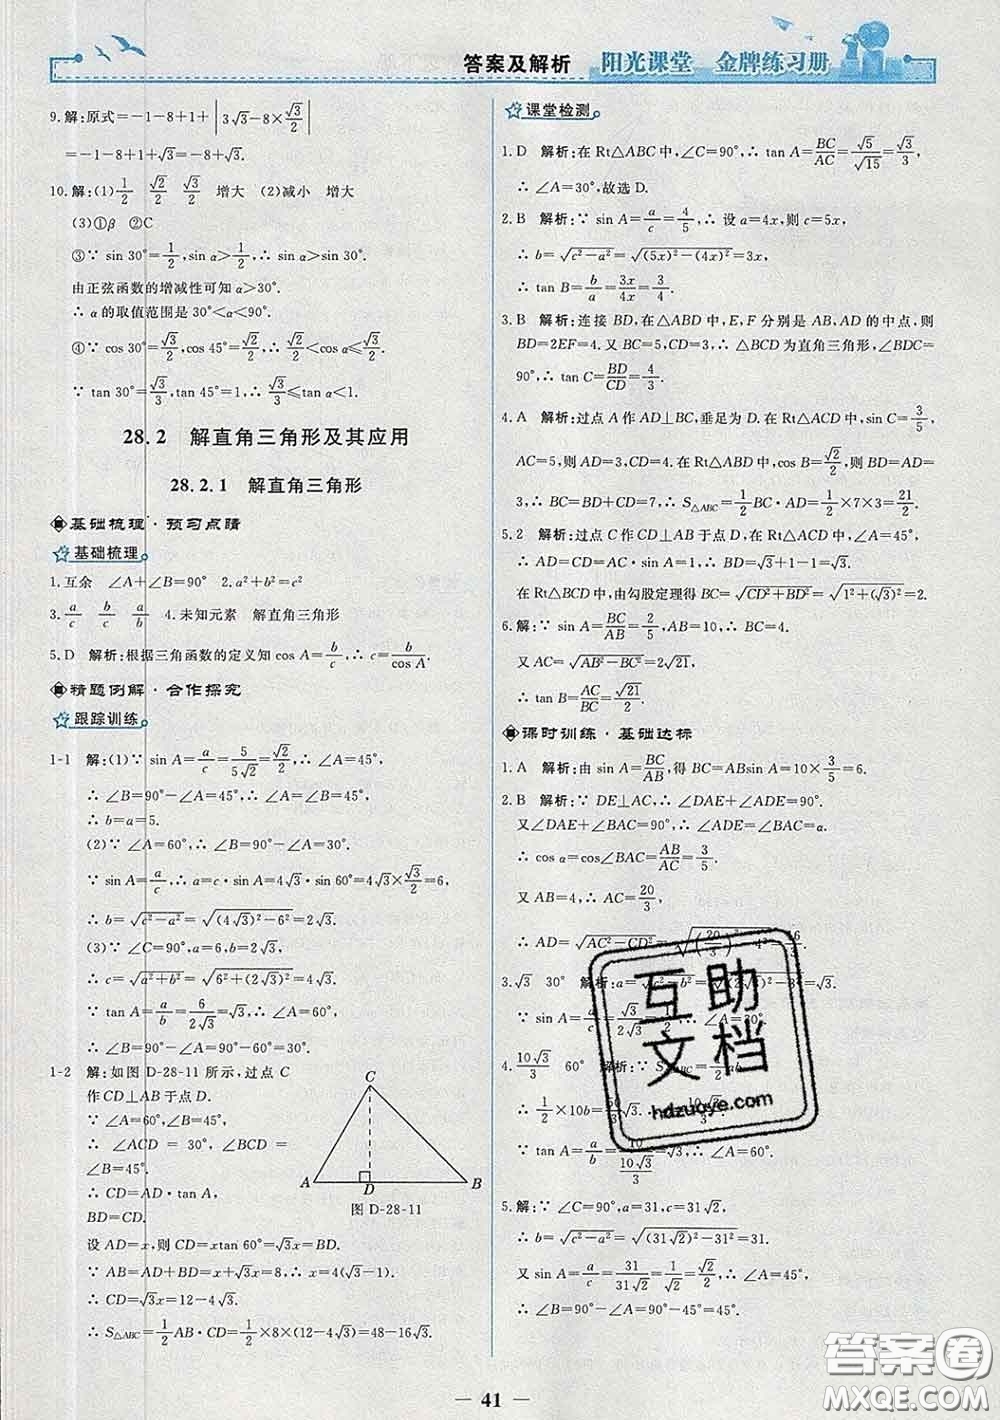 答案及解析 阳光课堂 金牌练习册
9.解:原式=-1-8+1+|3√3-8×√3/2|
=-1-8+1+√3=-8+√3.
10.解:(1)1/2 √2/2 √3/2 增大 (2)减小 增大
(3)①β ②C
③∵ sin 30°=1/2,sin α>1/2,∴ sin α>sin 30°.
由正弦函数的增减性可知 α>30°.
∴ α 的取值范围是 30°<α<90°.
④∵ cos 30°=√3/2,cos 45°=√2/2,∴ √2/2<cos α≤√3/2.
∵ tan 30°=√3/3,tan 45°=1,∴ √3/3≤tan α<1.
28.2 解直角三角形及其应用
28.2.1 解直角三角形
基础梳理·预习点睛
基础梳理
1.互余 ∠A+∠B=90° 2.a²+b²=c²
3.a/c b/c a/b 4.未知元素 解直角三角形
5.D 解析:根据三角函数的定义知 cos A=b/c,∴ c=b/cos A.
精题例解·合作探究
跟踪训练
1-1 解:(1)∵ sin A=a/c=5/5√2=√2/2,∴ ∠A=45°,
∴ ∠B=90°-∠A=45°,∴ ∠A=∠B=45°,
∴ b=a=5.
(2)∵ ∠A=60°,∴ ∠B=90°-∠A=30°.
∵ sin A=a/c,∴ a=c·sin A=4√3·sin 60°=4√3×√3/2=6,
∴ b=√(c²-a²)=√((4√3)²-6²)=2√3.
(3)∵ ∠C=90°,a=6,b=2√3,
∴ c=√(a²+b²)=√(6²+(2√3)²)=4√3.
∵ tan A=a/b=6/2√3=√3,∴ ∠A=60°,
∴ ∠B=90°-∠A=90°-60°=30°.
1-2 解:如图 D-28-11 所示,过点 C
作 CD⊥AB 于点 D.
∵ ∠A=60°,∠B=45°,
∴ ∠ACD = 30°, ∠BCD =
∠B=45°.
∴ CD=AD·tan A,
BD=CD.
C
A D B
图 D-28-11
设 AD=x,则 CD=xtan 60°=√3x=BD.
∵ AB=AD+BD=x+√3x=8,∴ x=4√3-4.
∴ CD=√3x=12-4√3.
∴ S△ABC=1/2AB·CD=1/2×8×(12-4√3)=48-16√3.
课堂检测
1.D 解析:在 Rt△ABC 中,∠C=90°,∴ tan A=BC/AC=√5/√15=√3/3,
∴ ∠A=30°,故选 D.
2.B 解析:∵ sin A=a/c=4/5,∴ 设 a=4x,则 c=5x,
∴ b=√(c²-a²)=√((5x)²-(4x)²)=3x,
∴ tan B=b/a=3x/4x=3/4.
3.B 解析:连接 BD,在△ABD 中,E,F 分别是 AB,AD 的中点,则
BD=2EF=4.又 BC=5,CD=3,∴ △BCD 为直角三角形,∠BDC=
90°,∴ tan C=BD/CD=4/3.
4.A 解析:过点 A 作 AD⊥BC,垂足为 D.在 Rt△ACD 中,sin C=3/5,
AC=5,则 AD=3,∴ CD=4.在 Rt△ABD 中,cos B=√2/2,则 BD=AD=
3,∴ BC=BD+CD=7,∴ S△ABC=1/2BC·AD=1/2×7×3=21/2.
5.2 解析:过点 C 作 CD⊥AB 于点 D,在 Rt△ACD 中,∠A=45°,
∴ AD=CD=AC·sin A=1,∴ BD=√3+1-1=√3.
在 Rt△BCD 中,由勾股定理得 BC=√(CD²+BD²)=√(1²+(√3)²)=2.
6.解:∵ sin A=BC/AB=2/5,AB=10,∴ BC=4.
又 AC=√(AB²-BC²)=2√21,
∴ tan B=AC/BC=√21/2.
课时训练·基础达标
1.A 解析:由 sin A=BC/AB,得 BC=ABsin A=10×3/5=6.
2.B 解析:∵ DE⊥AC,∴ ∠DAE+∠ADE=90°.
又∠DAE+∠BAC=90°,∴ ∠ADE=∠BAC=α.
∴ cos α=cos∠BAC=AB/AC=3/5.
又 AB=4,∴ AC=20/3.
∴ AD=√(AC²-CD²)=
3.√3 30° 解析:a=√(c²-b²)
∵ sin A=
4.10√3/3 60° 解析:∵ S△ABC
∴ 1/2×10b=50√3/3,
∵ tan A=a/b=10/(10√3/3)=√3,∴ ∠A=60°.
5.解:∵ ∠C=90°,a=31,c=31√2,
∴ b=√(c²-a²)=√((31√2)²-31²)=31.
又 sin A=a/c=31/31√2=1/√2=√2/2,∴ ∠A=45°,
∴ ∠B=90°-∠A=90°-45°=45°.
互助
文档
hdzuoye.com
答案圈
MXQE.COM
— 41 —